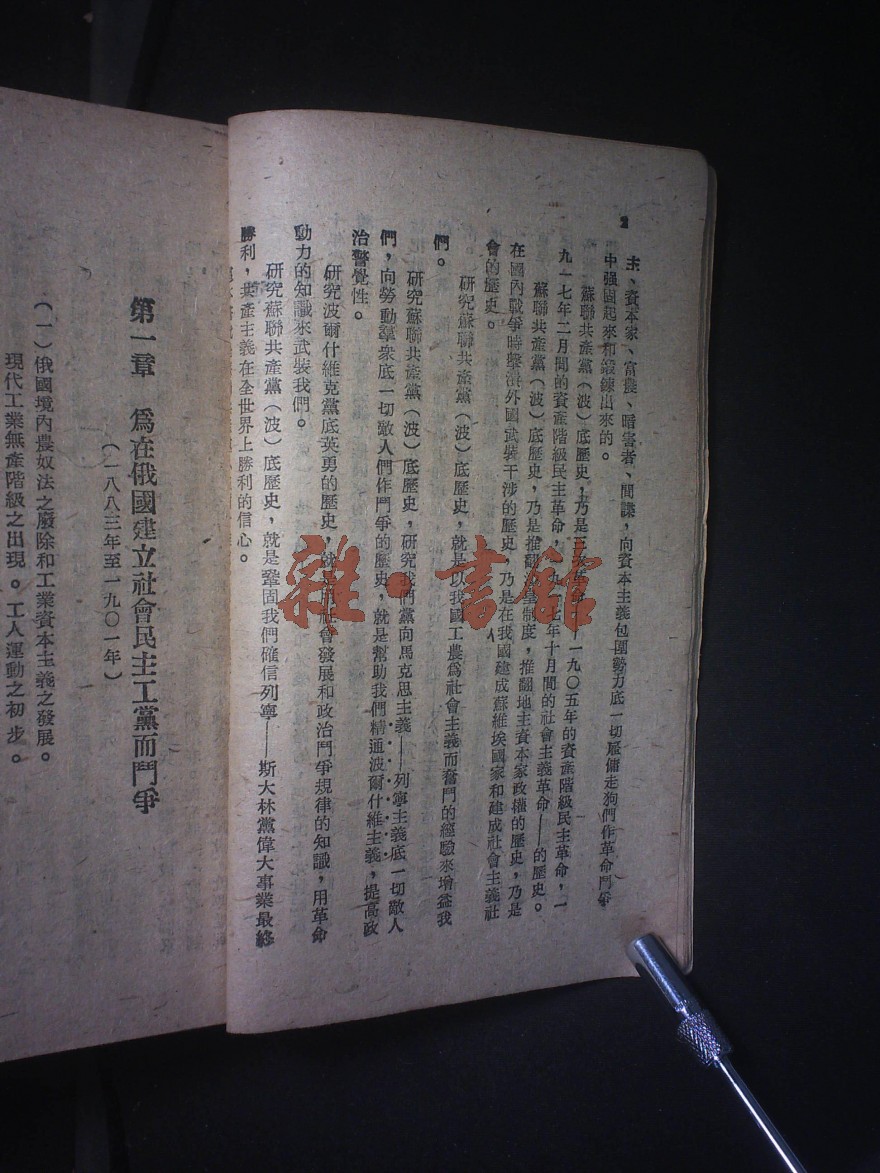 2
主、資本家、富農、暗害者、間諜，向資本主義包圍勢力底一切雇傭走狗們作革命鬥爭
中强固起來和鍛鍊出來的。
蘇聯共產黨（波）底歷史，乃是三次革命——一九〇五年的資產階級民主革命，一
九一七年二月間的資產階級民主革命，一九一七年十月間的社會主義革命——的歷史。
蘇聯共產黨（波）底歷史，乃是推翻沙皇制度，推翻地主資本家政權的歷史，乃是
在國內戰爭時擊潰外國武裝干涉的歷史，乃是在我國建成蘇維埃國家和建成社會主義社
會的歷史。
研究蘇聯共產黨（波）底歷史，就是以我國工農爲社會主義而奮鬥的經驗來增益我
們。
研究蘇聯共產黨（波）底歷史，研究我們黨向馬克思主義——列寧主義底一切敵人
們，向勞動羣衆底一切敵人們作鬥爭的歷史，就是幫助我們精通波爾什維主義，提高政
治警覺性。
研究波爾什維克黨底英勇的歷史，就是用社會發展和政治鬥爭規律的知識，用革命
動力的知識來武裝我們。
研究蘇聯共產黨（波）底歷史，就是鞏固我們確信列寧——斯大林黨偉大事業最終
勝利，共產主義在全世界上勝利的信心。
第一章　爲在俄國建立社會民主工黨而鬥爭
（一八八三年至一九〇一年）
（一）俄國境內農奴法之廢除和工業資本主義之發展。
現代工業無產階級之出現。工人運動之初步。
雜·書館